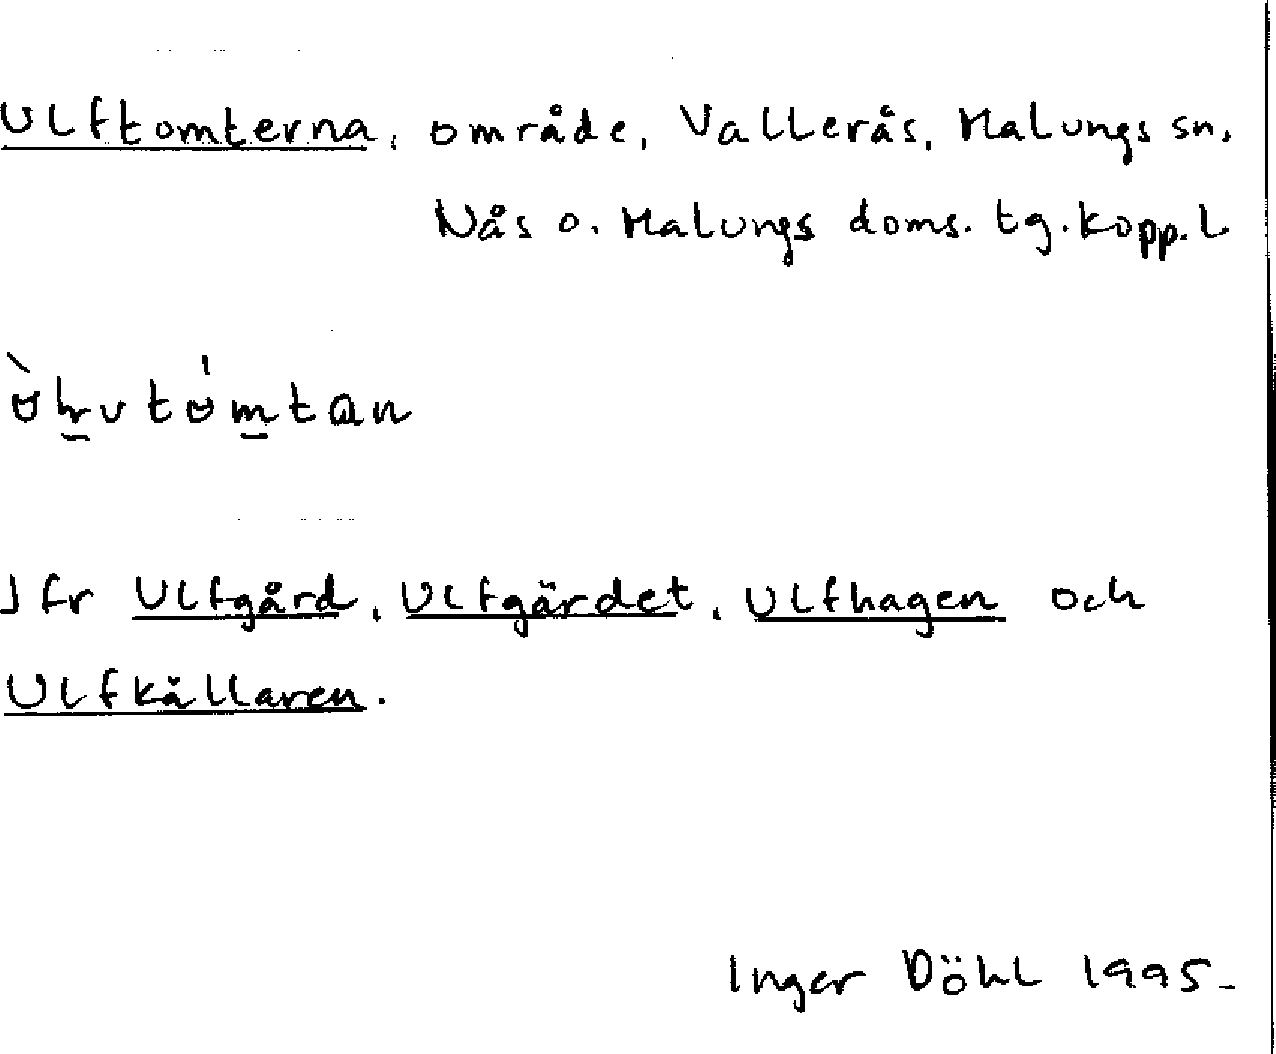 Ulftomterna, område, Vallerås, Malungs sn.
Nås o. Malungs doms. tg. Kopp. l
Jfr Ulfgård, Ulfgärdet, Ulfhagen och
Ulfkällaren.
Inger Döhl 1995-